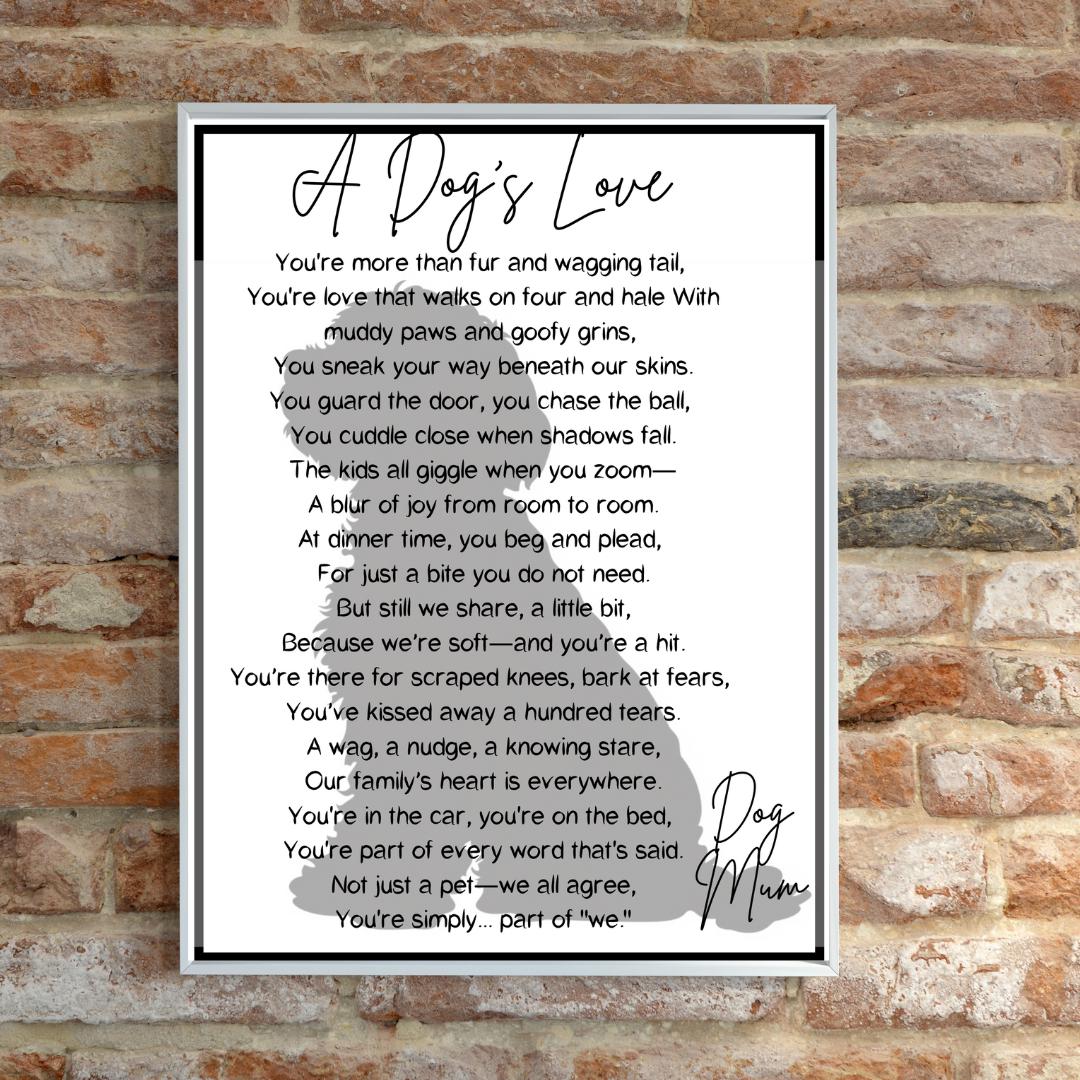 A Dog's Love
You're more than fur and wagging tail,
You're love that walks on four and hale With
muddy paws and goofy grins,
You sneak your way beneath our skins.
You guard the door, you chase the ball,
You cuddle close when shadows fall.
The kids all giggle when you zoom—
A blur of joy from room to room.
At dinner time, you beg and plead,
For just a bite you do not need.
But still we share, a little bit,
Because we're soft—and you're a hit.
You're there for scraped knees, bark at fears,
You've kissed away a hundred tears.
A wag, a nudge, a knowing stare,
Our family's heart is everywhere.
You're in the car, you're on the bed,
You're part of every word that's said.
Not just a pet—we all agree,
You're simply... part of "we."
Dog
Mum